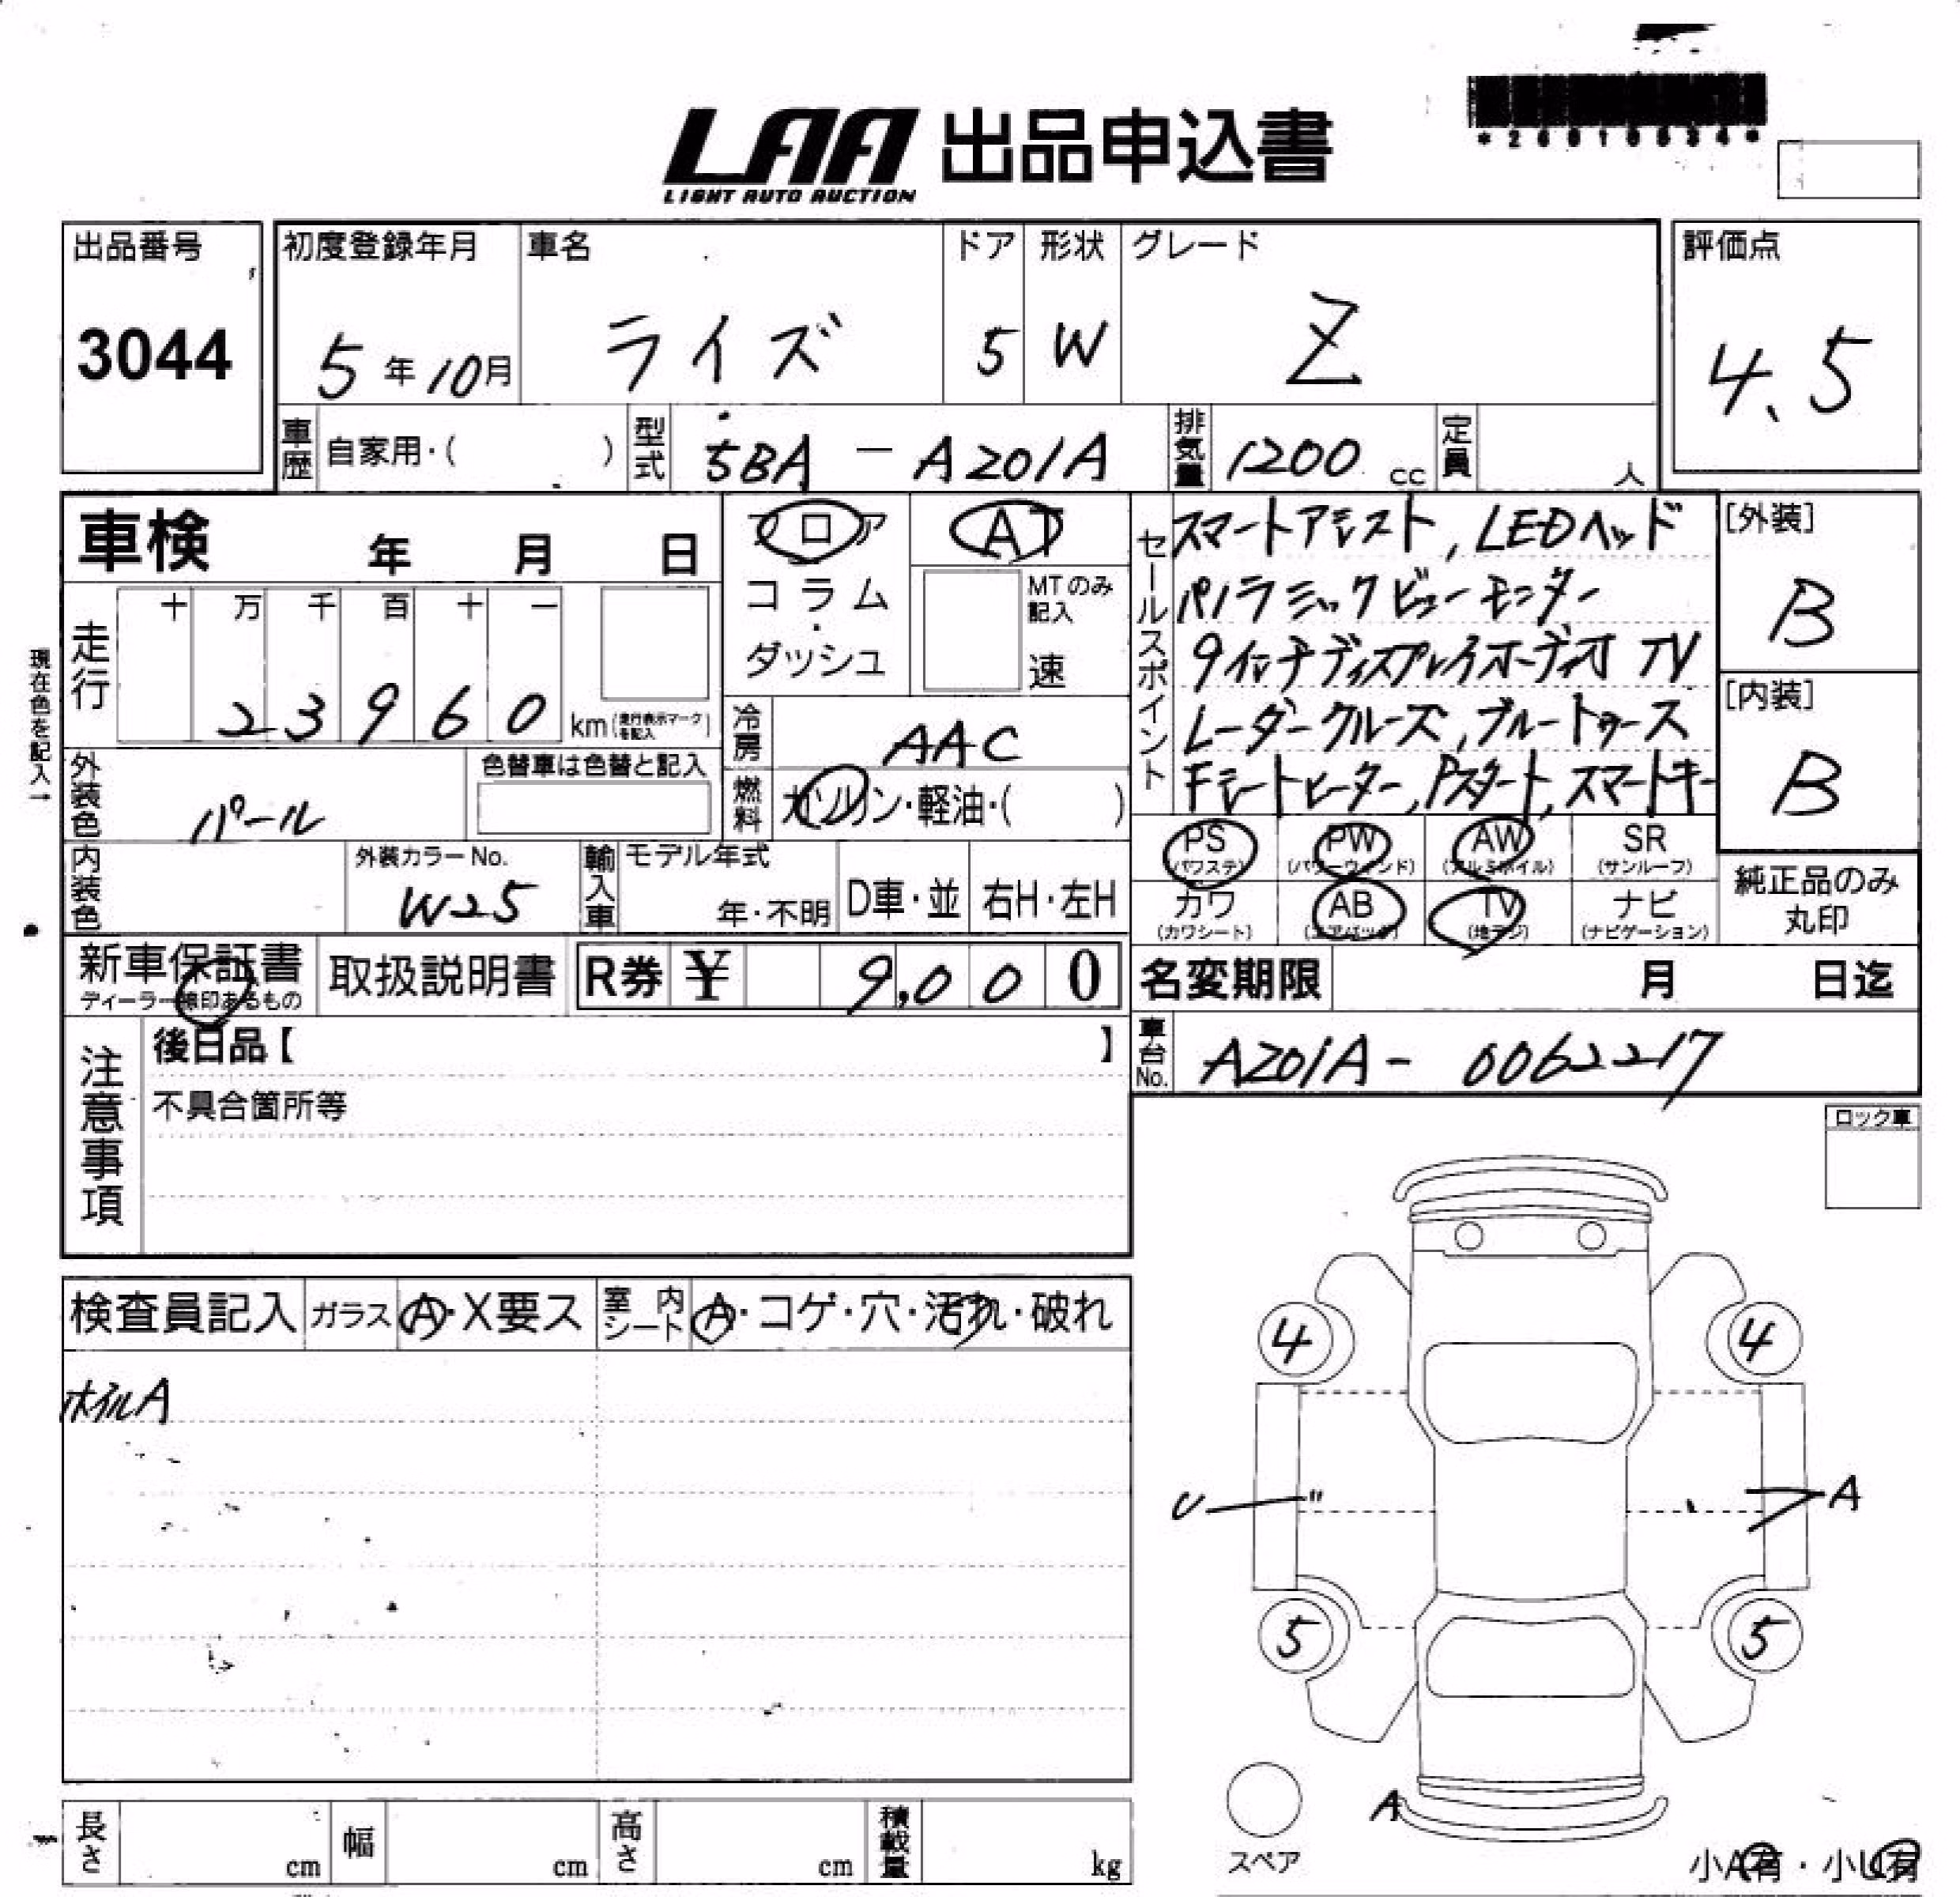 *26010534*
LAA 出品申込書
LIGHT AUTO AUCTION
出品番号
3044
初度登録年月
5年10月
車名
ライズ
ドア
5
形状
W
グレード
Z
評価点
4.5
車歴 自家用・( )
型式 5BA - A201A
排気量 1200 cc
定員 人
車検 年 月 日
フロア
コラム
・
ダッシュ
AT
MTのみ
記入
速
走行
十 万 千 百 十 一
2 3 9 6 0 km (走行表示マークを記入)
現在色を記入→
冷房 AAC
燃料 ガソリン・軽油・( )
外装色 パール
色替車は色替と記入
内装色
外装カラーNo.
W25
輸入車
モデル年式
年・不明
D車・並
右H・左H
セールスポイント
スマートアシスト, LEDヘッド
パノラミックビューモニター
9インチディスプレイオーディオ TV
レーダークルーズ, ブルートゥース
Fシートヒーター, Pスタート, スマートキー
[外装]
B
[内装]
B
PS (パワステ)
PW (パワーウィンド)
AW (アルミホイル)
SR (サンルーフ)
カワ (カワシート)
AB (エアバック)
TV (地デジ)
ナビ (ナビゲーション)
純正品のみ
丸印
新車保証書
ディーラー検印あるもの
取扱説明書
R券 ¥ 9,000
名変期限 月 日迄
車台No. A201A- 0062217
注意事項
後日品【 】
不具合箇所等
ロック車
検査員記入
ガラス A・X要ス
室内シート A・コゲ・穴・汚れ・破れ
ホイルA
4 4
U A
5 5
A
スペア
小A有・小U有
長さ cm
幅 cm
高さ cm
積載量 kg